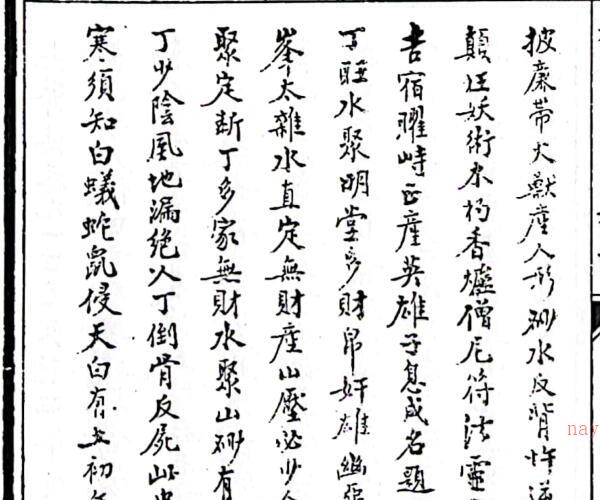 披麻帶火獸產人形砂水反背忤逆
顛狂妖術木杓香爐僧尼符法靈
吉宿曜峙正產英雄子息成名題
丁旺水聚明堂多財帛奸雄幽
峯太雜水直定無財產山壓必少
聚定斷丁多家無財水聚山砂有
丁少陰風地漏絕人丁倒骨反屍
寒須知白蟻蛇鼠侵天白有初年
nay